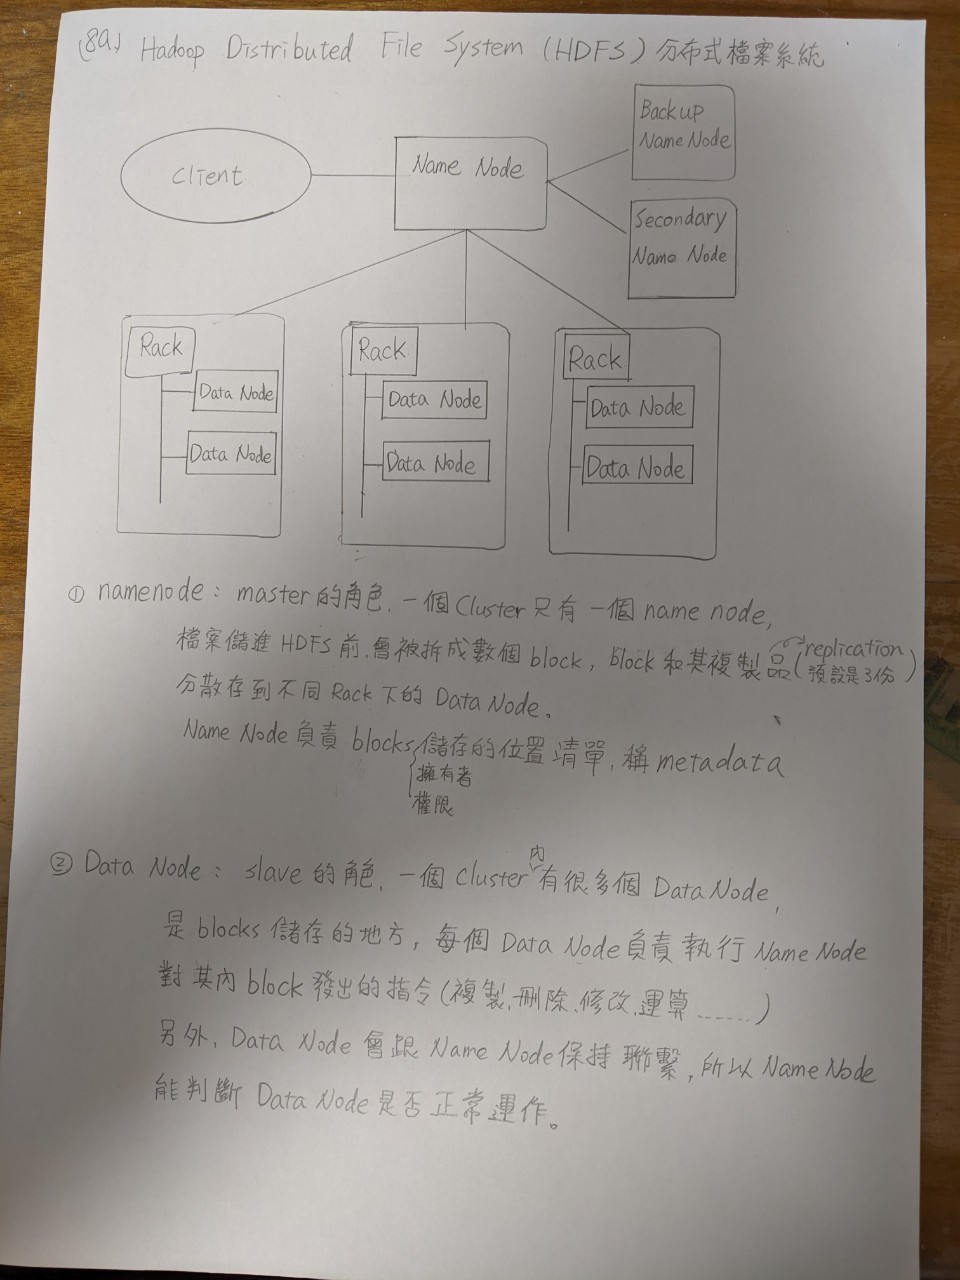 (8a) Hadoop Distributed File System (HDFS) 分布式檔案系統
Client
Name Node
Backup
Name Node
Secondary
Name Node
Rack
Data Node
Data Node
Rack
Data Node
Data Node
Rack
Data Node
Data Node
① namenode : master的角色, 一個Cluster只有一個name node,
檔案儲進HDFS前,會被拆成數個block, block和其複製品(replication 預設是3份)
分散存到不同Rack下的Data Node。
Name Node負責blocks儲存的位置清單, 稱metadata
擁有者
權限
② Data Node : slave的角色, 一個Cluster內有很多個Data Node,
是blocks儲存的地方, 每個Data Node負責執行Name Node
對其內block發出的指令(複製,刪除、修改,運算......)
另外, Data Node會跟Name Node保持聯繫, 所以Name Node
能判斷Data Node是否正常運作。